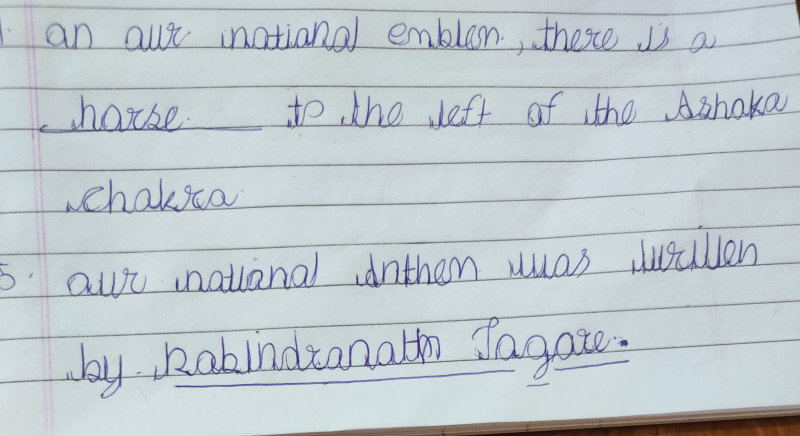 1. an our national emblem, there is a
horse to the left of the Ashoka
chakra
5. our national Anthem was written
by Rabindranath Tagore.